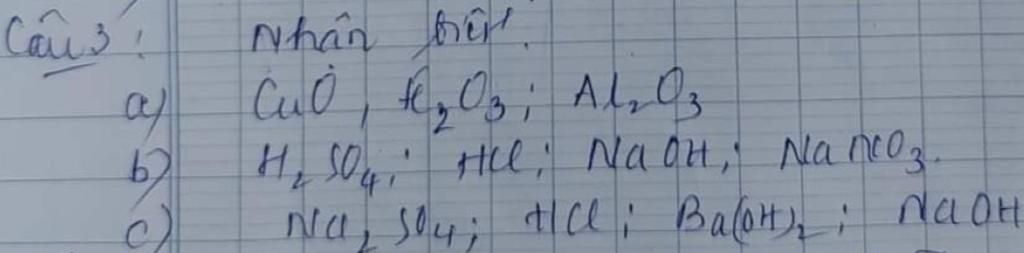 Câu 3: Nhận biết.
a) CuO, Fe2O3; Al2O3
b) H2SO4; HCl; NaOH; NaHCO3.
c) Na2SO4; HCl; Ba(OH)2; NaOH